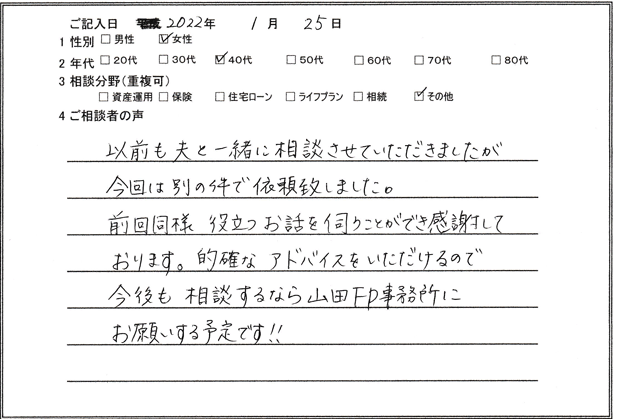 ご記入日 2022年 1月 25日
1 性別 □男性 ☑女性
2 年代 □20代 □30代 ☑40代 □50代 □60代 □70代 □80代
3 相談分野(重複可)
□資産運用 □保険 □住宅ローン □ライフプラン □相続 ☑その他
4 ご相談者の声
以前も夫と一緒に相談させていただきましたが
今回は別の件で依頼致しました。
前回同様 役立つお話を伺うことができ感謝して
おります。的確な アドバイスをいただけるので
今後も 相談するなら山田FP事務所に
お願いする予定です!!